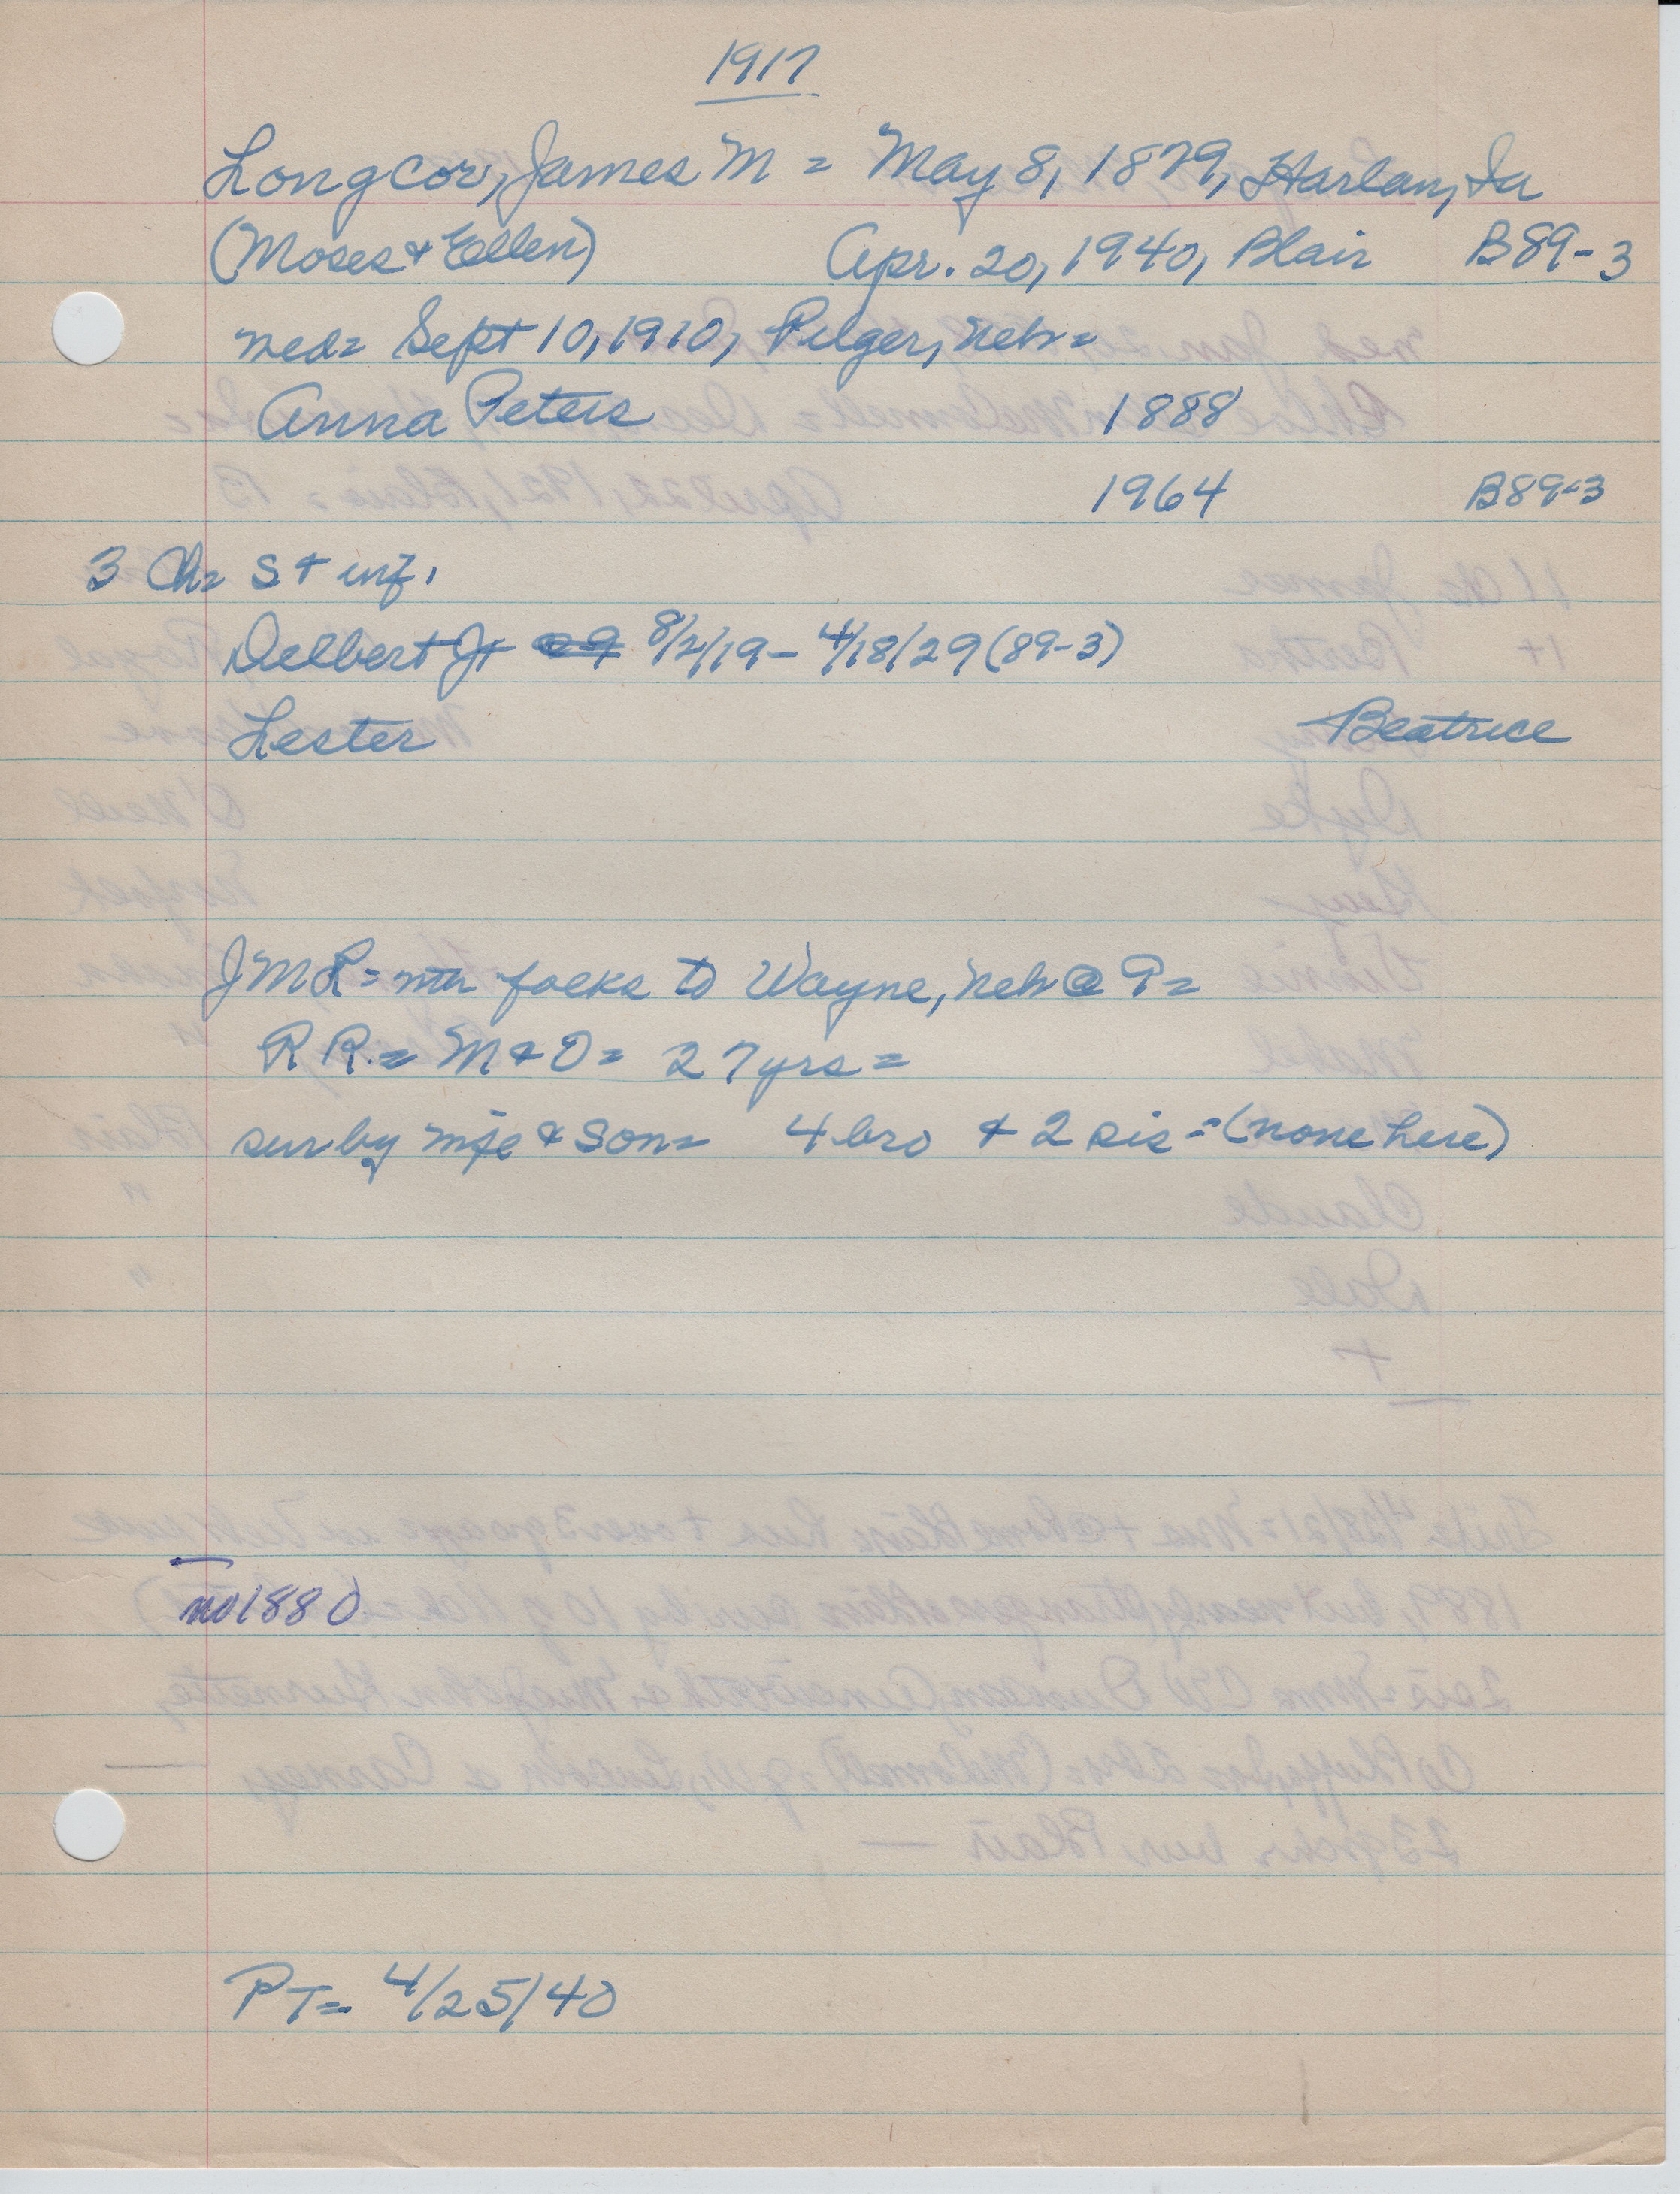 1917
Longcor, James M = May 8, 1879, Harlan, Ia
(Moses & Ellen) Apr. 20, 1940, Blair B89-3
med= Sept 10, 1910, Pilger, Neb=
Anna Peters 1888
1964 B89-3
3 Ch= S + inf.
Delbert J+ 8/2/19 - 4/18/29 (89-3)
Lester Beatrice
JML = wth folks to Wayne, Neb @ 9=
RR.= M&O= 27yrs=
sur by wife & son= 4 bro & 2 sis = (none here)
no 1880
PT= 4/25/40